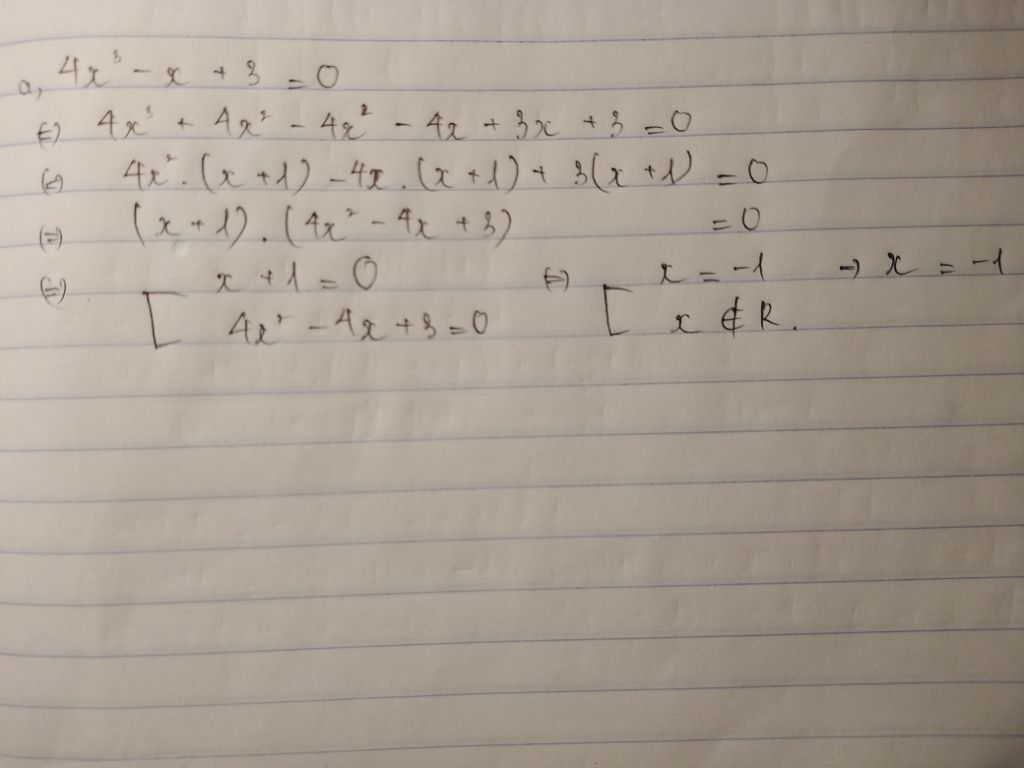 a, 4x³ - x + 3 = 0
(=) 4x³ + 4x² - 4x² - 4x + 3x + 3 = 0
(=) 4x².(x+1) - 4x.(x+1) + 3(x+1) = 0
(=) (x+1).(4x² - 4x + 3) = 0
(=) [ x + 1 = 0 (=) [ x = -1 → x = -1
4x² - 4x + 3 = 0 x ∉ R.